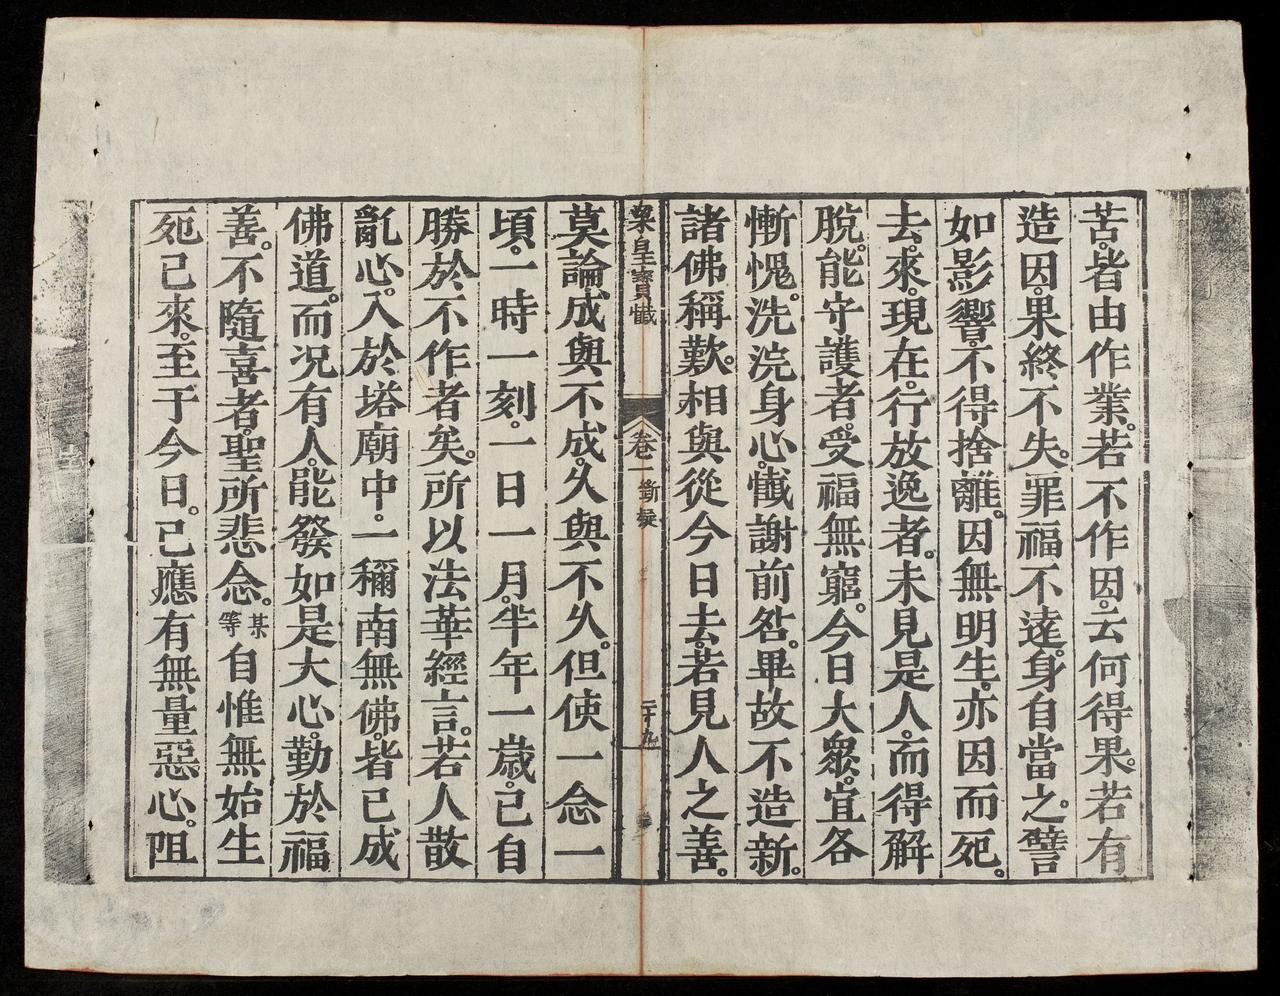 苦。皆由作業。若不作因。云何得果。若有
造因。果終不失。罪福不遠。身自當之。譬
如影響。不得捨離。因無明生。亦因而死。
去。來。現在。行放逸者。未見是人。而得解
脫。能守護者。受福無窮。今日大衆。宜各
慚愧。洗浣身心。懺謝前咎。畢故不造新。
諸佛稱歎。相與從今日去。若見人之善。
梁皇寶懺
卷一 斷疑
二十九
莫論成與不成。久與不久。但使一念一
頃。一時一刻。一日一月。半年一歲。已自
勝於不作者矣。所以法華經言。若人散
亂心。入於塔廟中。一稱南無佛。皆已成
佛道。而况有人。能發如是大心。勤於福
善。不隨喜者。聖所悲念。某等自惟無始生
死已來。至于今日。已應有無量惡心。阻